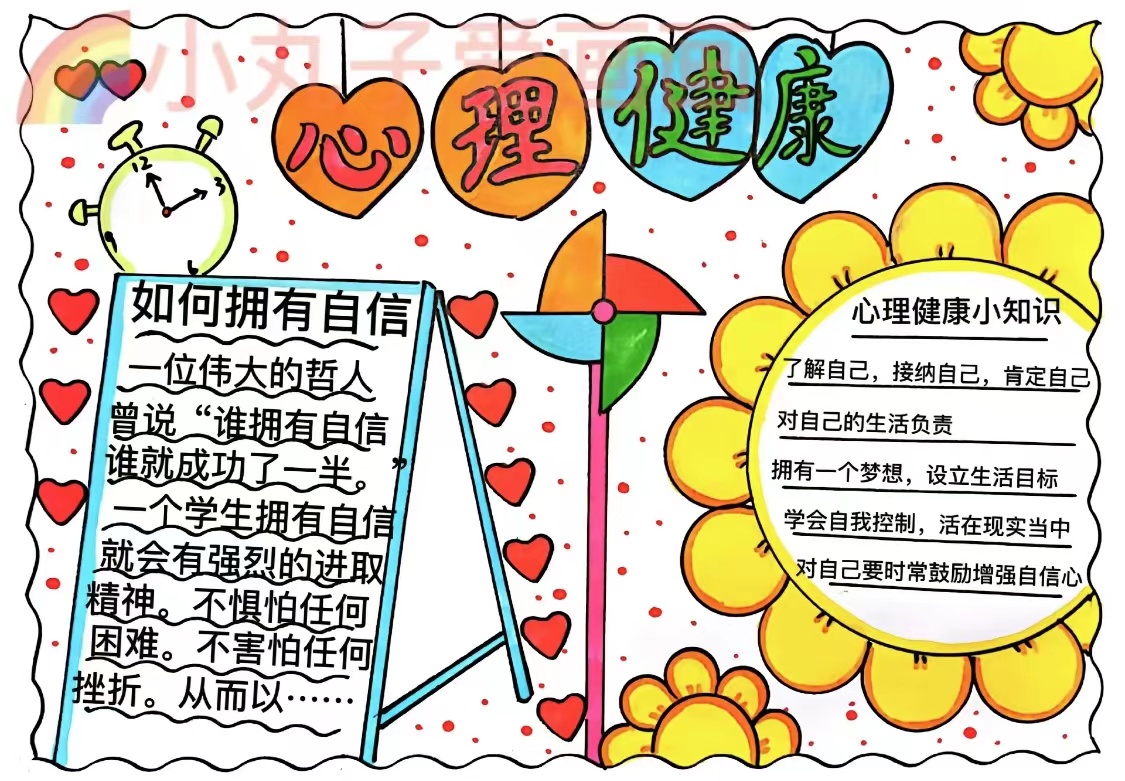 小丸子爱画画
心理健康
12
3
9
6
如何拥有自信
一位伟大的哲人
曾说“谁拥有自信
谁就成功了一半。”
一个学生拥有自信
就会有强烈的进取
精神。不惧怕任何
困难。不害怕任何
挫折。从而以……
心理健康小知识
了解自己，接纳自己，肯定自己
对自己的生活负责
拥有一个梦想，设立生活目标
学会自我控制，活在现实当中
对自己要时常鼓励增强自信心